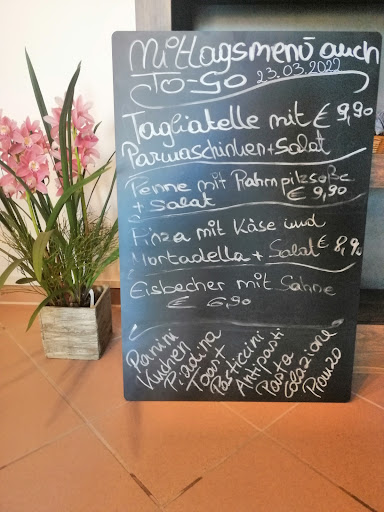 Mittagsmenü auch
To-Go 23.03.2022
Tagliatelle mit € 9,90
Parmaschinken + Salat
Penne mit Rahmpilzsoße
+ Salat € 9,90
Pinza mit Käse und
Mortadella + Salat € 8,90
Eisbecher mit Sahne
€ 6,90
Panini
Kuchen
Piadina
Toast
Pasticcini
Antipasti
Pasta
Colazione
Pranzo